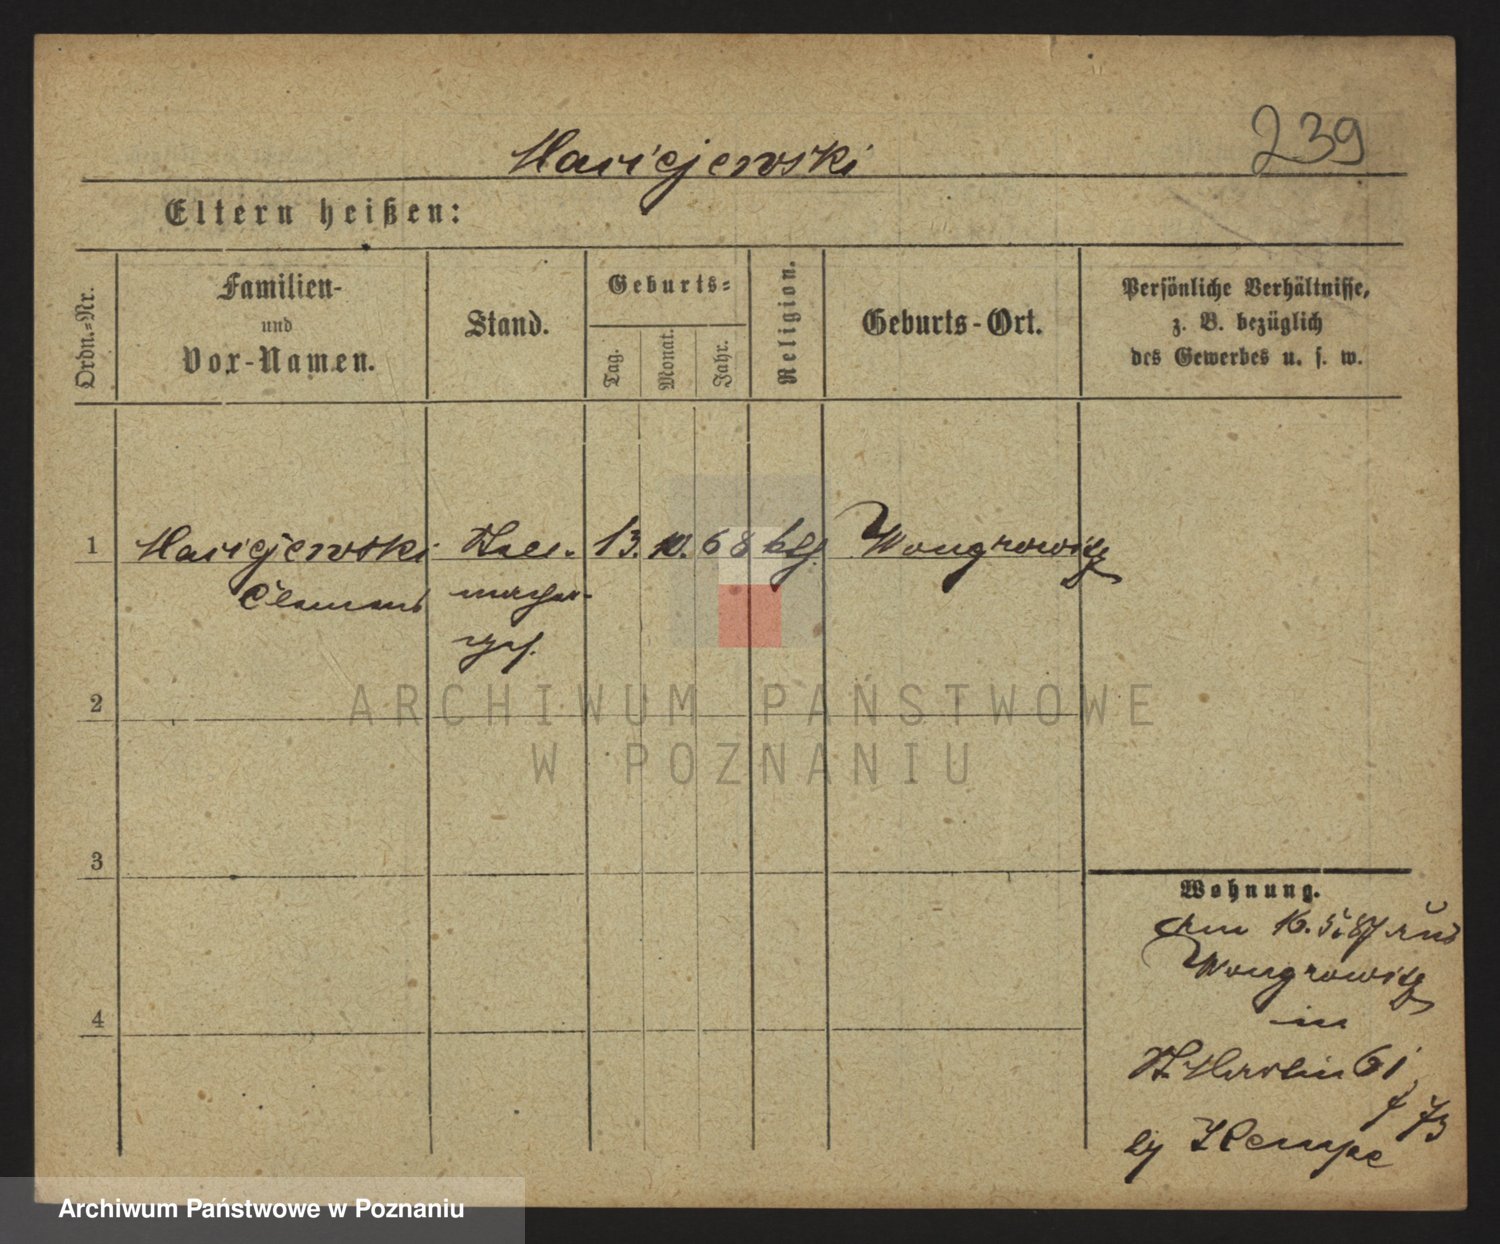 239
Maciejewski
Eltern heißen:
Ordn.-Nr.
Familien-
und
Vor-Namen.
Stand.
Geburts-
Tag.
Monat.
Jahr.
Religion.
Geburts-Ort.
Persönliche Verhältnisse,
z. B. bezüglich
des Gewerbes u. s. w.
1 Maciejewski 13. 10. 68 ktH. Wongrowitz
Clemens
2
ARCHIWUM PAŃSTWOWE
W POZNANIU
3
Wohnung.
Am 16.5.87 aus
Wongrowitz
in
4
St. Martin 61
73
by Krempe
Archiwum Państwowe w Poznaniu